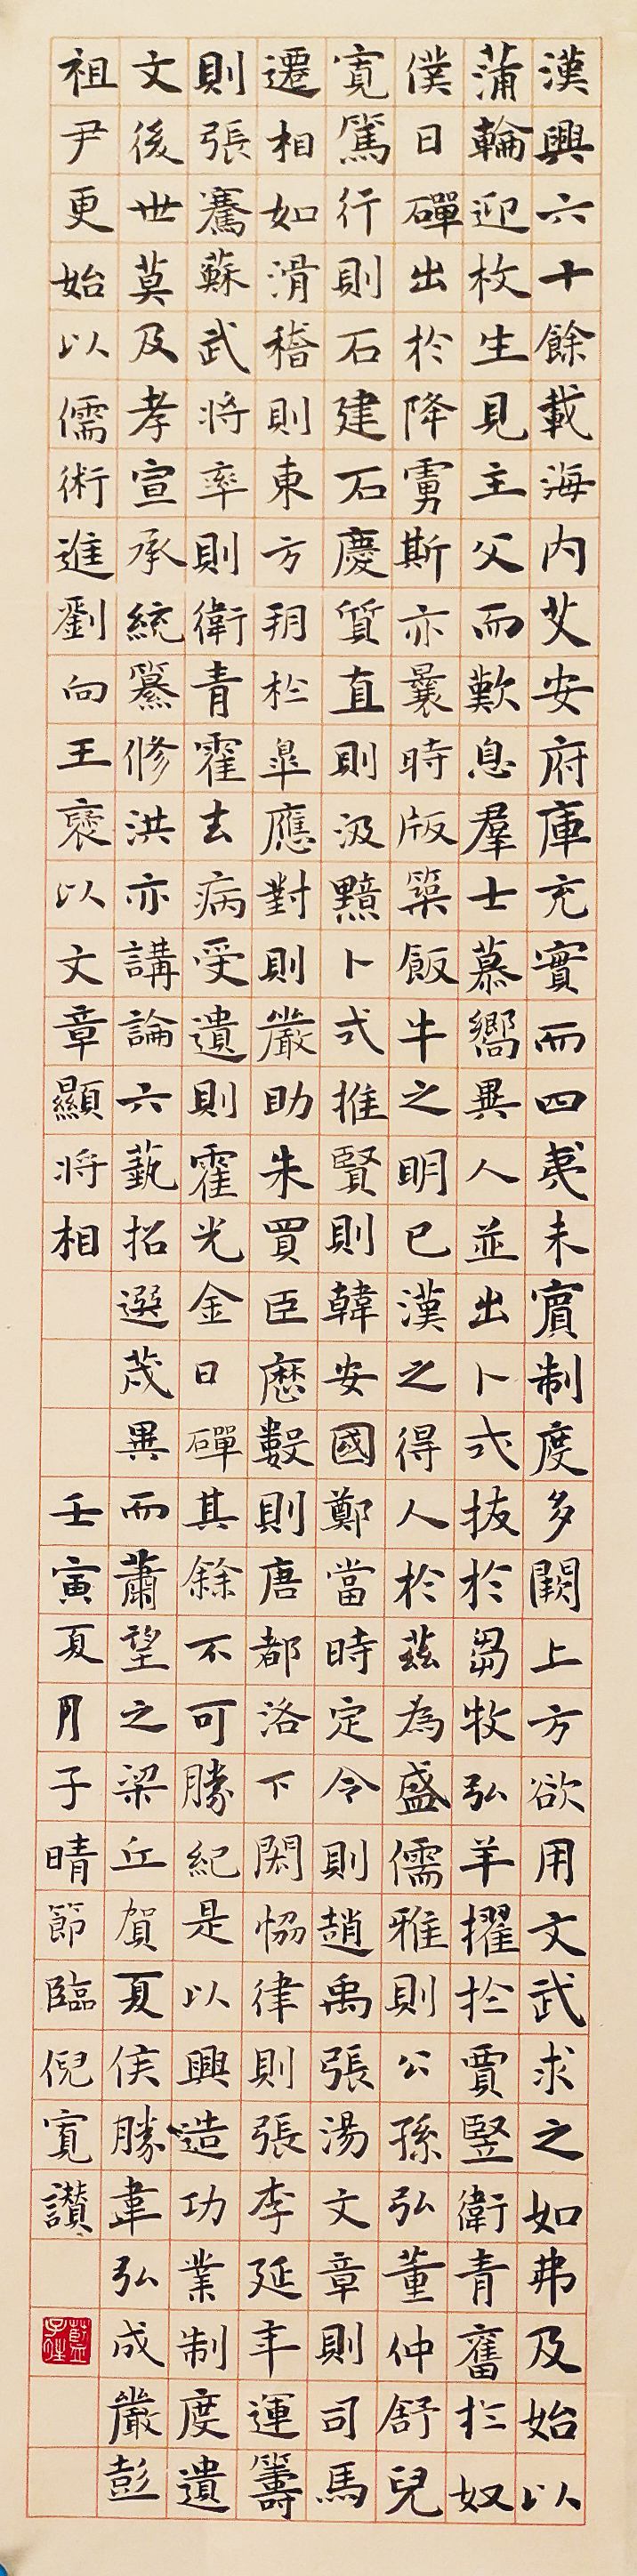 漢興六十餘載海内艾安府庫充實而四夷未賓制度多闕上方欲用文武求之如弗及始以
蒲輪迎枚生見主父而歎息羣士慕嚮異人並出卜式拔於芻牧弘羊擢於賈豎衛青奮於奴
僕日磾出於降虜斯亦曩時版築飯牛之明已漢之得人於茲為盛儒雅則公孫弘董仲舒兒
寬篤行則石建石慶質直則汲黯卜式推賢則韓安國鄭當時定令則趙禹張湯文章則司馬
遷相如滑稽則東方朔枚皐應對則嚴助朱買臣歷數則唐都洛下閎恊律則張李延年運籌
則張騫蘇武將率則衛青霍去病受遺則霍光金日磾其餘不可勝紀是以興造功業制度遺
文後世莫及孝宣承統纂修洪亦講論六藝招選茂異而蕭望之梁丘賀夏侯勝韋弘成嚴彭
祖尹更始以儒術進劉向王褒以文章顯将相
壬寅夏月子晴節臨倪寬讃